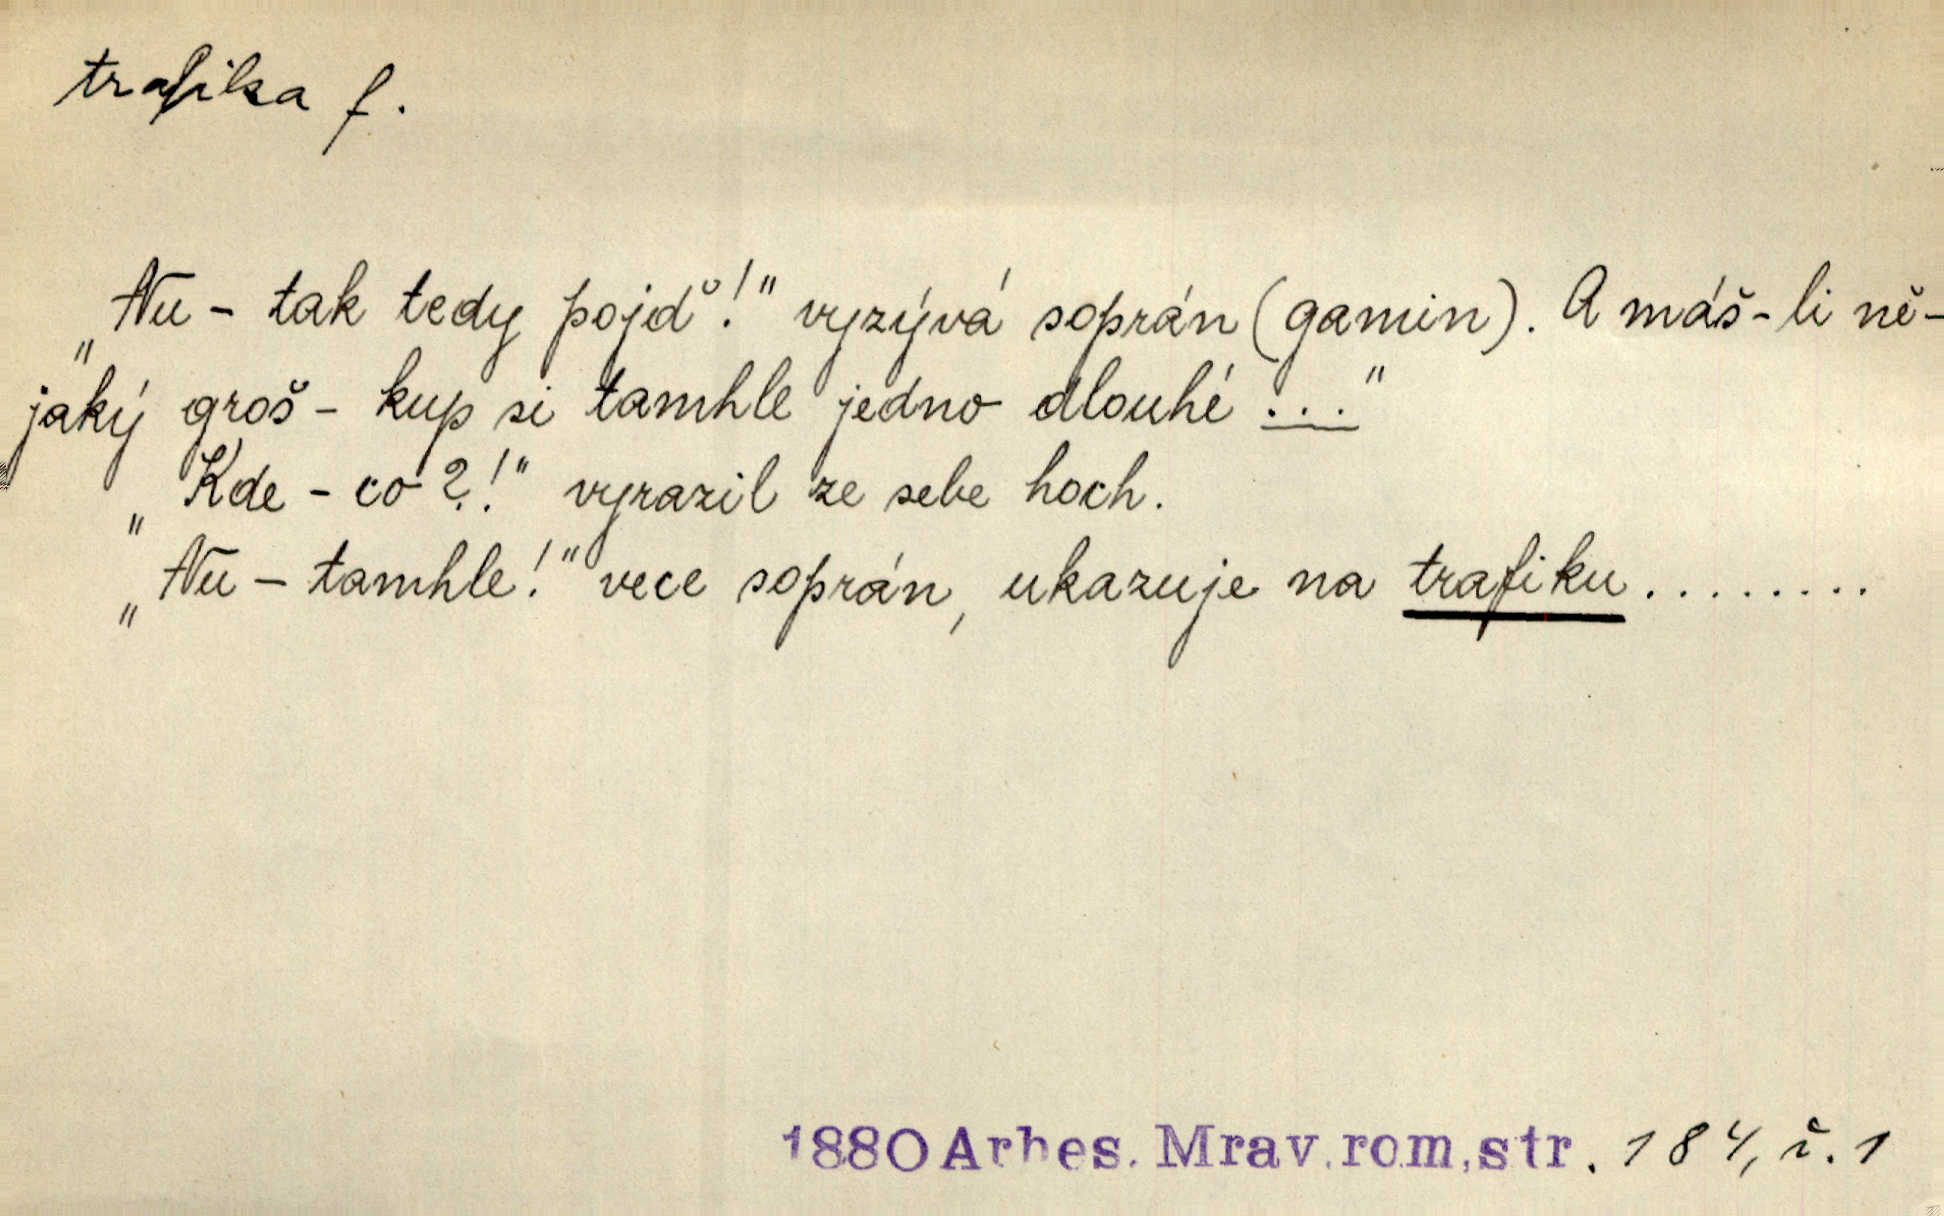 trafika f.
„Nu – tak tedy pojď!" vyzývá soprán (gamin). A máš-li ně-
jaký groš – kup si tamhle jedno dlouhé ..."
„Kde – co?!" vyrazil ze sebe hoch.
„Nu – tamhle!" vece soprán, ukazuje na trafiku.........
1880 Arbes. Mrav. rom, str. 184, č. 1